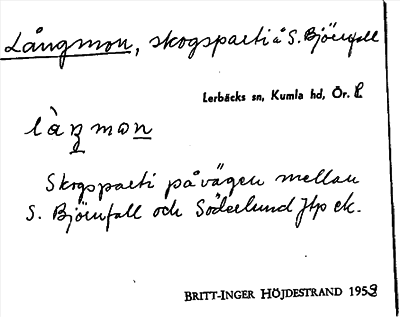 Långmon, skogsparti å S. Björnfall
Lerbäcks sn, Kumla hd, Ör. l
làŋmon
Skogsparti på vägen mellan
S. Björnfall och Söderlund Jtp ek.
BRITT-INGER HÖJDESTRAND 1959